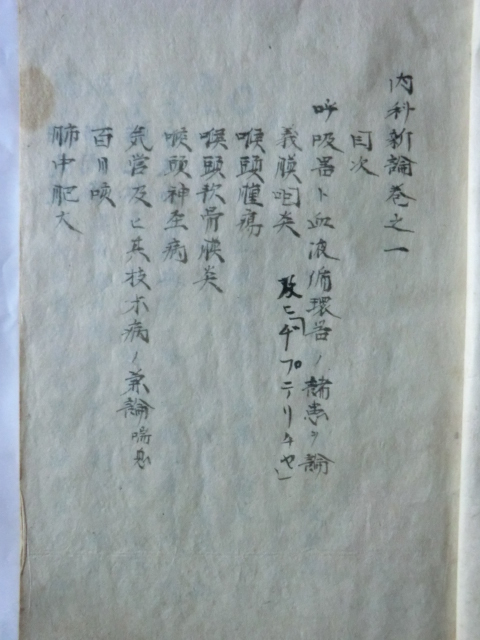 内科新論巻之一
目次
呼吸器ト血液循環器ノ諸患ヲ論
義膜咽炎 及ヒ「ヂプテリチヤ」
喉頭腫瘍
喉頭軟骨膜炎
喉頭神圣病
気管及ヒ其枝朩病ノ兼論 喘息
百日咳
肺中肥大